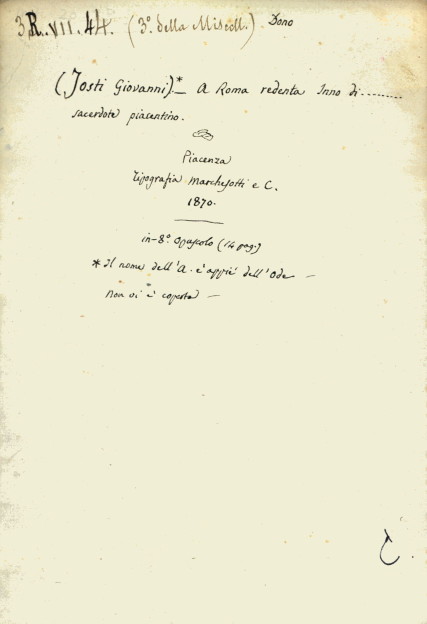 3R. VII. 44. (3º. della Miscell.) Dono
(Josti Giovanni).* — A Roma redenta Inno di ........
sacerdote piacentino.
Piacenza
Tipografia Marchesotti e C.
1870.
in-8º. Opuscolo (14 pag.)
* Il nome dell'A. è appiè dell'Ode —
Non vi è coperta —